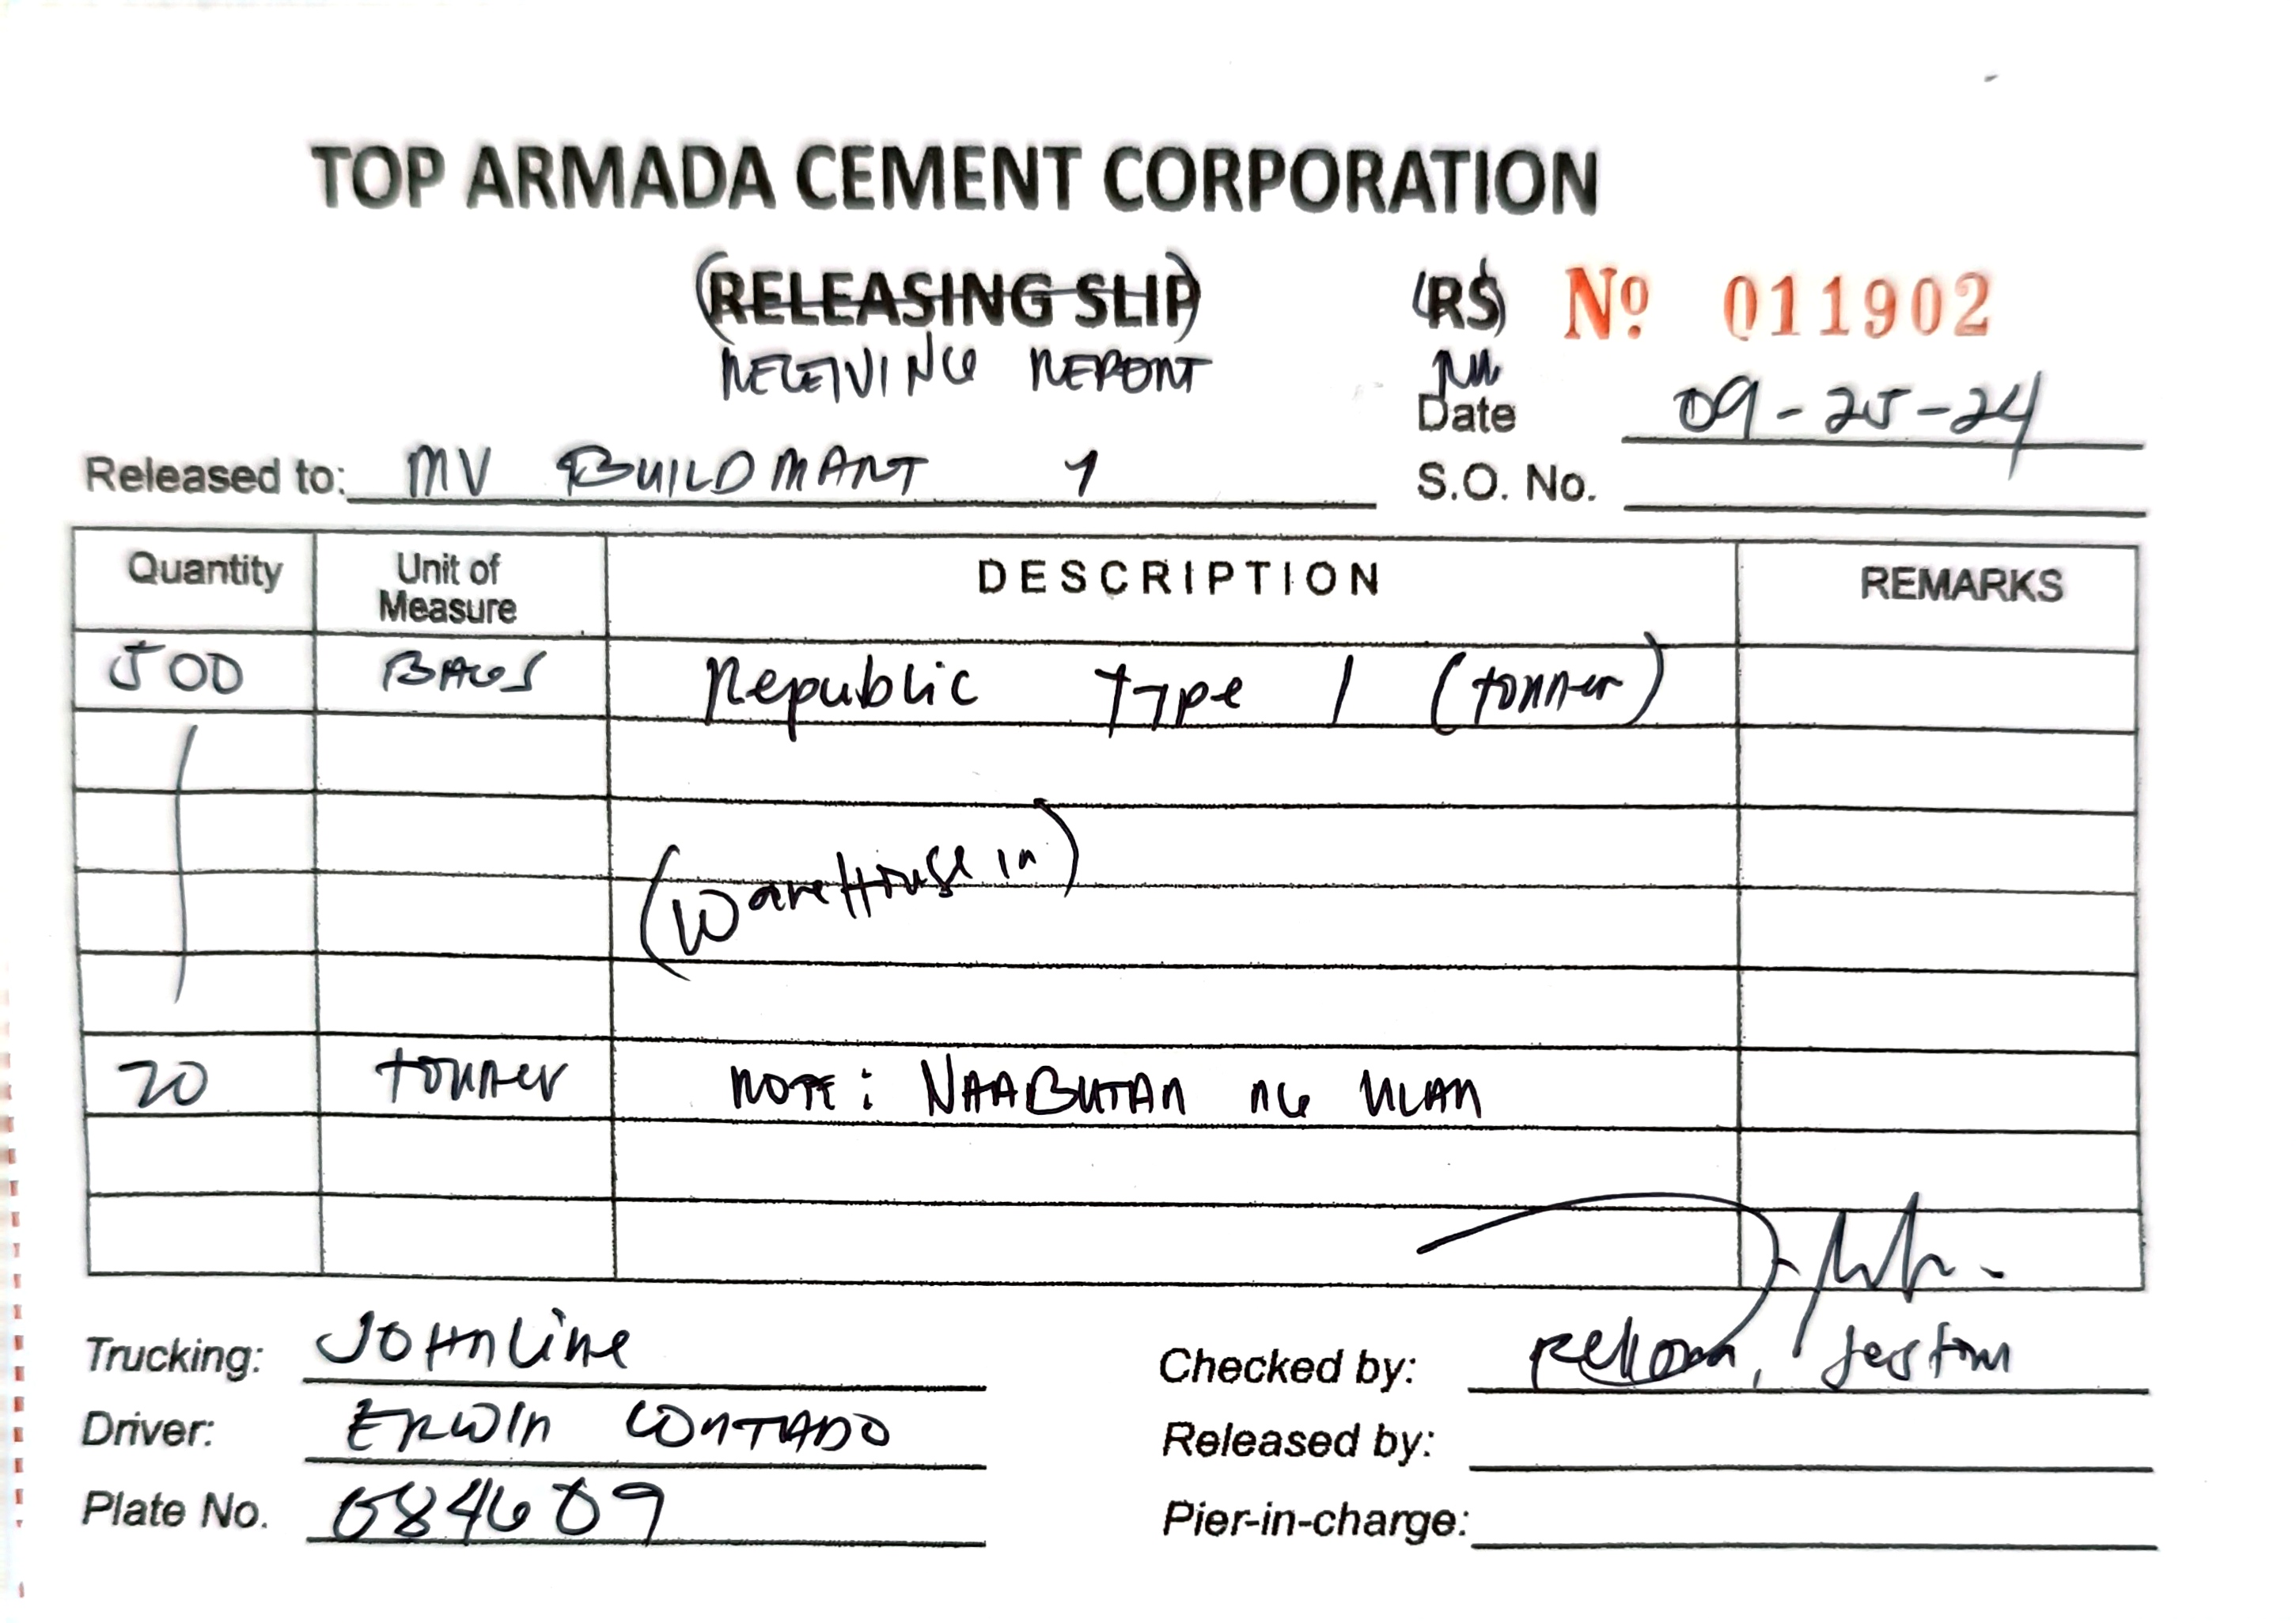 TOP ARMADA CEMENT CORPORATION
(RELEASING SLIP) (RS) Nº 011902
RECEIVING REPORT RR
Date 09-25-24
Released to: MV BUILDMART 1 S.O. No.
Quantity Unit of Measure DESCRIPTION REMARKS
500 BAGS Republic Type 1 (tonner)
(WareHouse in)
20 tonner NOTE: NAABUTAN NG ULAN
Trucking: JOHNLINE Checked by:
Driver: ERWIN CONTADO Released by:
Plate No. 084609 Pier-in-charge: